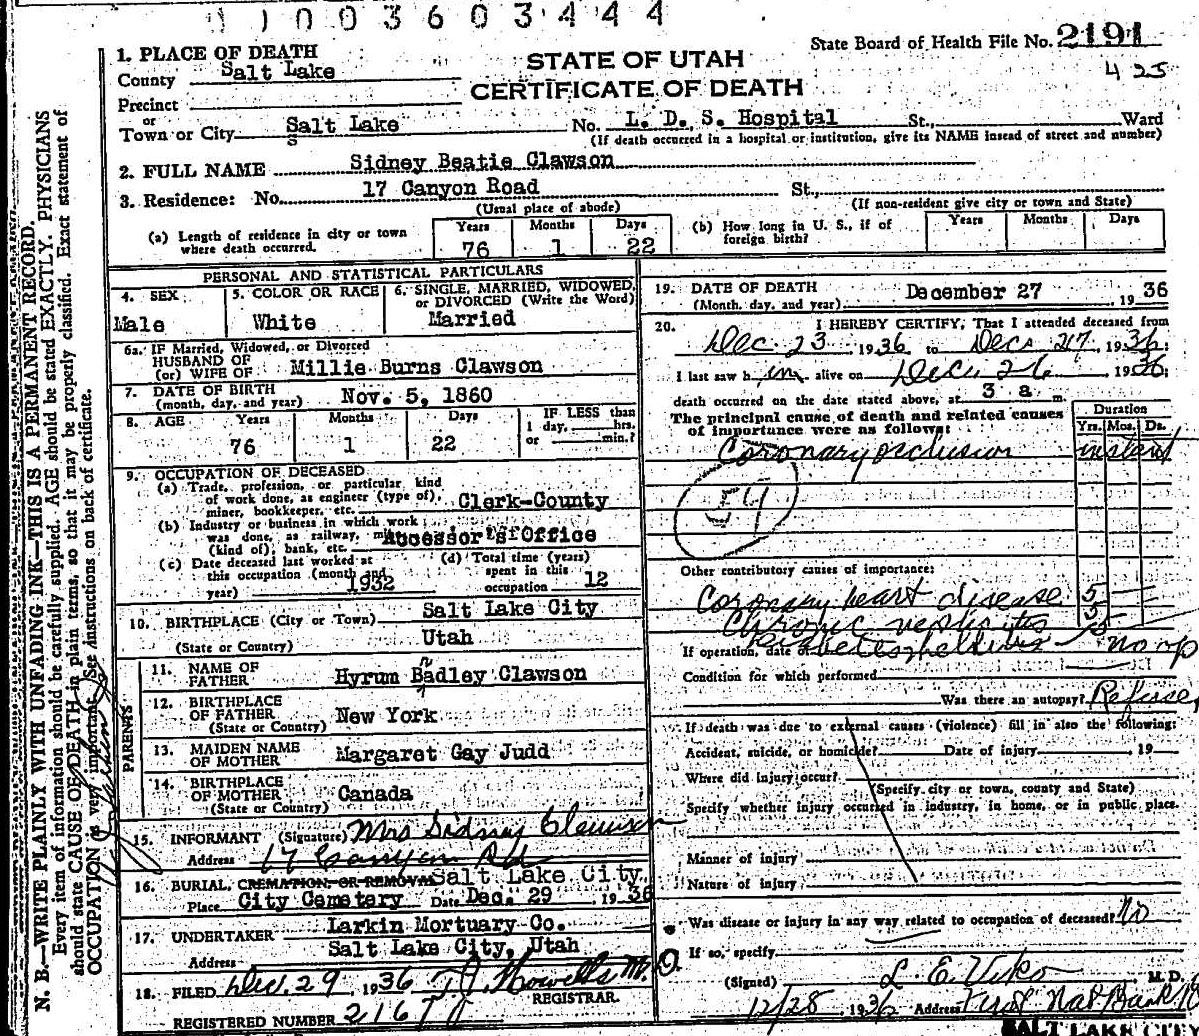 1003603444
State Board of Health File No. 2191
425
STATE OF UTAH
CERTIFICATE OF DEATH
1. PLACE OF DEATH
County Salt Lake
Precinct
or
Town or City Salt Lake No. L. D. S. Hospital St., Ward
(If death occurred in a hospital or institution, give its NAME insead of street and number)
2. FULL NAME Sidney Beatie Clawson
3. Residence: No. 17 Canyon Road St.,
(Usual place of abode) (If non-resident give city or town and State)
(a) Length of residence in city or town where death occurred. Years 76 Months 1 Days 22
(b) How long in U. S., if of foreign birth? Years Months Days
PERSONAL AND STATISTICAL PARTICULARS
4. SEX Male
5. COLOR OR RACE White
6. SINGLE, MARRIED, WIDOWED, or DIVORCED (Write the Word) Married
6a. IF Married, Widowed, or Divorced
HUSBAND OF
(or) WIFE OF Millie Burns Clawson
7. DATE OF BIRTH
(month, day, and year) Nov. 5, 1860
8. AGE Years 76 Months 1 Days 22
IF LESS than 1 day, hrs. or min.?
9. OCCUPATION OF DECEASED
(a) Trade, profession, or particular kind
of work done, as engineer (type of),
miner, bookkeeper, etc. Clerk-County
(b) Industry or business in which work
was done, as railway,
(kind of), bank, etc. Accessor's Office
(c) Date deceased last worked at
this occupation (month and
year) 1932
(d) Total time (years)
spent in this
occupation 12
10. BIRTHPLACE (City or Town) Salt Lake City
(State or Country) Utah
PARENTS
11. NAME OF
FATHER Hyrum Badley Clawson
n
12. BIRTHPLACE
OF FATHER New York
(State or Country)
13. MAIDEN NAME
OF MOTHER Margaret Gay Judd
14. BIRTHPLACE
OF MOTHER Canada
(State or Country)
15. INFORMANT (Signature) Mrs Sidney Clawson
Address 17 Canyon Rd
16. BURIAL, CREMATION, OR REMOVAL Salt Lake City
Place City Cemetery Date Dec. 29 1936
17. UNDERTAKER Larkin Mortuary Co.
Address Salt Lake City, Utah
18. FILED Dec. 29 1936 T. J. Howells M. D.
REGISTRAR.
REGISTERED NUMBER 216
19. DATE OF DEATH
(Month, day, and year) December 27 1936
20. I HEREBY CERTIFY, That I attended deceased from
Dec. 23 1936 to Dec 27, 1936
I last saw him alive on Dec 26 1936
death occurred on the date stated above, at 3 a m.
The principal cause of death and related causes
of importance were as follows:
Duration
Yrs. Mos. Ds.
Coronary occlusion instant
Other contributory causes of importance:
Coronary heart disease 5
Chronic 5
If operation, date of no op
Condition for which performed
Was there an autopsy? Refused
If death was due to external causes (violence) fill in also the following:
Accident, suicide, or homicide? Date of injury 19
Where did injury occur?
(Specify city or town, county and State)
Specify whether injury occurred in industry, in home, or in public place.
Manner of injury
Nature of injury
Was disease or injury in any way related to occupation of deceased? No
If so, specify
(Signed) L. E. Viko M. D.
12/28 1936 Address First Nat Bank
SALT LAKE CITY
N. B.—WRITE PLAINLY WITH UNFADING INK—THIS IS A PERMANENT RECORD.
Every item of information should be carefully supplied. AGE should be stated EXACTLY. PHYSICIANS
should state CAUSE OF DEATH in plain terms, so that it may be properly classified. Exact statement of
OCCUPATION is very important. See instructions on back of certificate.